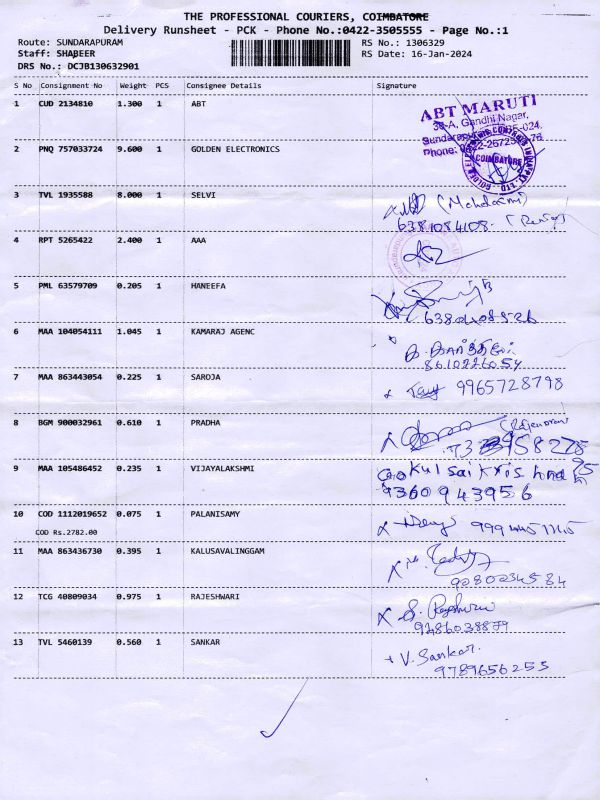 THE PROFESSIONAL COURIERS, COIMBATORE
Delivery Runsheet - PCK - Phone No.:0422-3505555 - Page No.:1
Route: SUNDARAPURAM RS No.: 1306329
Staff: SHABEER RS Date: 16-Jan-2024
DRS No.: DCJB130632901
S No Consignment No Weight PCS Consignee Details Signature
1 CUD 2134810 1.300 1 ABT
ABT MARUTI
Gandhi Nagar,
COIMBATORE
2 PNQ 757033724 9.600 1 GOLDEN ELECTRONICS
3 TVL 1935588 8.000 1 SELVI
6381084108-
4 RPT 5265422 2.400 1 AAA
5 PML 63579709 0.205 1 HANEEFA
6 MAA 104054111 1.045 1 KAMARAJ AGENC
8610226054
7 MAA 863443054 0.225 1 SAROJA
9965728798
8 BGM 900032961 0.610 1 PRADHA
9 MAA 105486452 0.235 1 VIJAYALAKSHMI
Gokulsaikrishna
9360943956
10 COD 1112019652 0.075 1 PALANISAMY
COD Rs.2782.00
11 MAA 863436730 0.395 1 KALUSAVALINGGAM
9280234584
12 TCG 40809034 0.975 1 RAJESHWARI
9486038879
13 TVL 5460139 0.560 1 SANKAR
V. Sankar.
9789656255